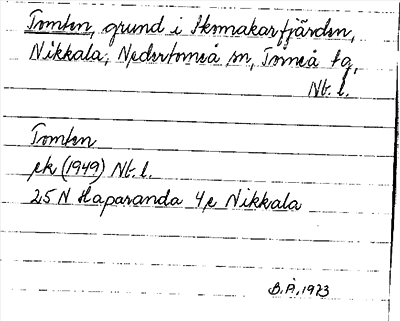 Tomten, grund i Skomakarfjärden,
Nikkala, Nedertorneå sn, Torneå tg,
Nb. l.
Tomten
ek (1949) Nb. l.
25 N Haparanda 4e Nikkala
B.Å, 1973